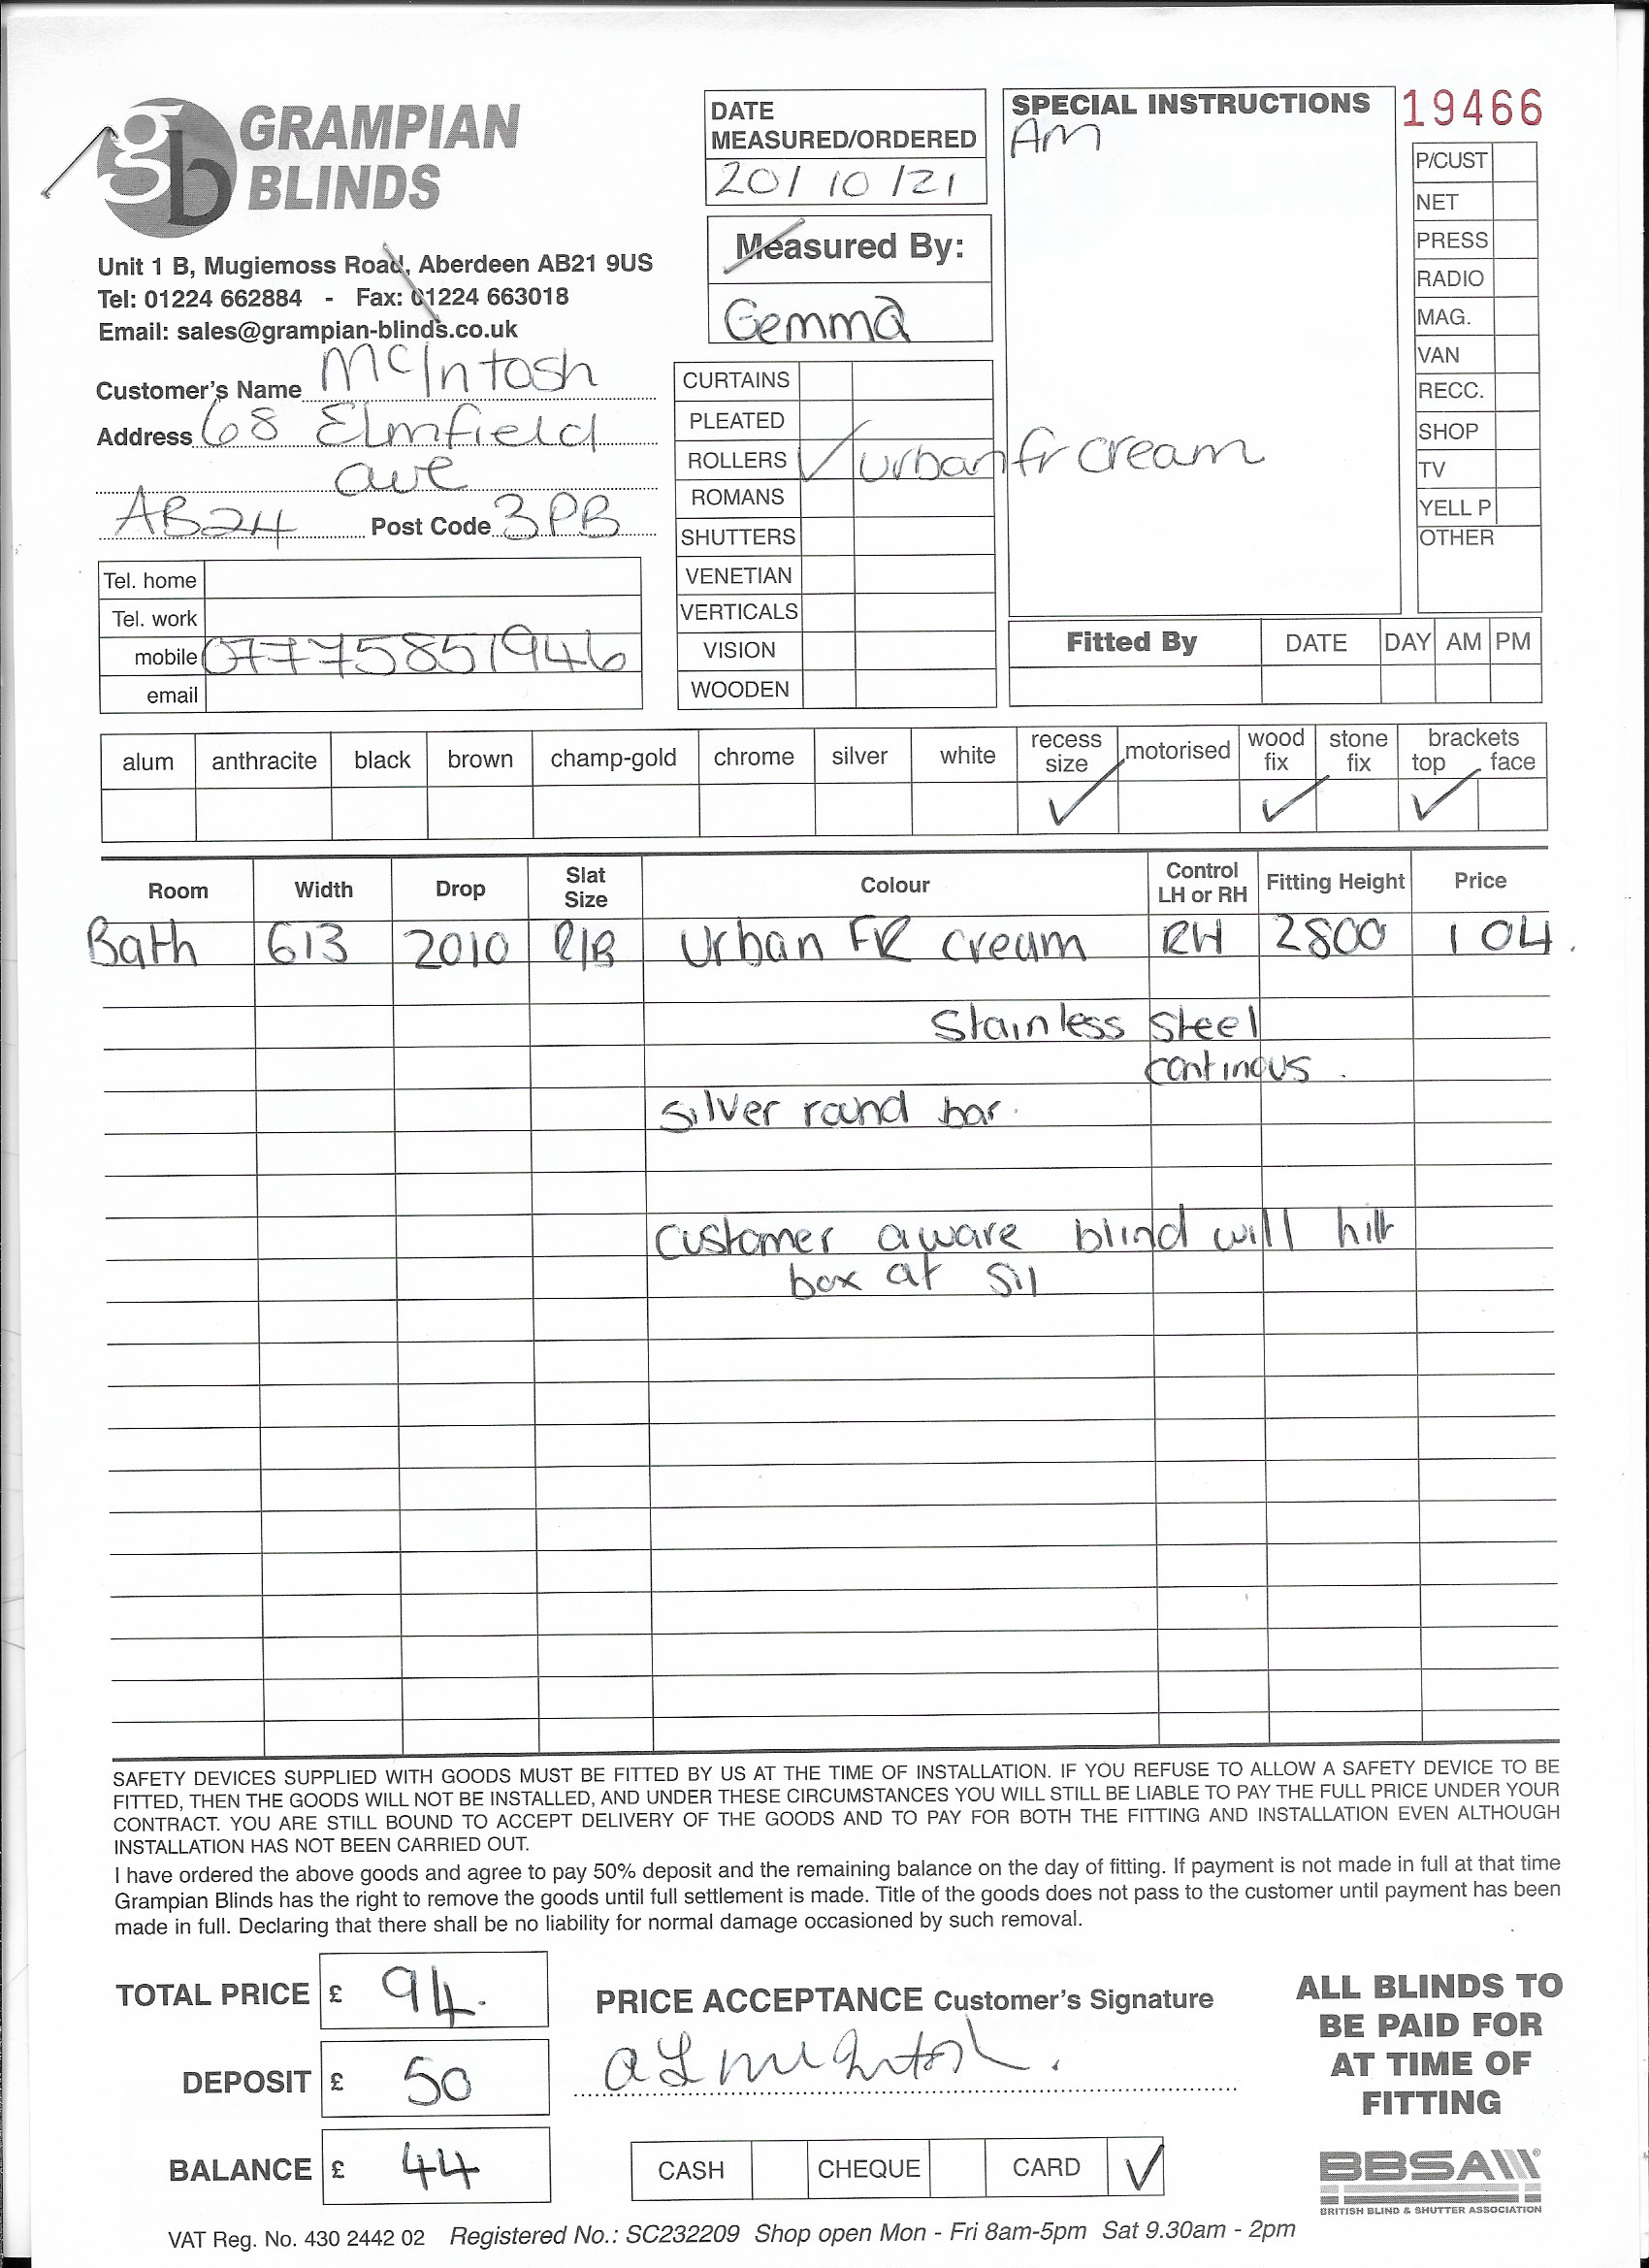 gb GRAMPIAN
BLINDS
Unit 1 B, Mugiemoss Road, Aberdeen AB21 9US
Tel: 01224 662884 - Fax: 01224 663018
Email: sales@grampian-blinds.co.uk
Customer's Name McIntosh
Address 68 Elmfield
ave
AB24 Post Code 3PB
Tel. home
Tel. work
mobile 07775851946
email
DATE
MEASURED/ORDERED
20/10/21
Measured By:
Gemma
CURTAINS
PLEATED
ROLLERS ✓ urban fr cream
ROMANS
SHUTTERS
VENETIAN
VERTICALS
VISION
WOODEN
SPECIAL INSTRUCTIONS
AM
19466
P/CUST
NET
PRESS
RADIO
MAG.
VAN
RECC.
SHOP
TV
YELL P
OTHER
Fitted By DATE DAY AM PM
alum anthracite black brown champ-gold chrome silver white recess size motorised wood fix stone fix brackets top face
✓ ✓ ✓
Room Width Drop Slat Size Colour Control LH or RH Fitting Height Price
Bath 613 2010 R/B Urban FR cream RH 2800 104.
Stainless Steel
continous.
Silver round bar.
customer aware blind will hit
box at sil
SAFETY DEVICES SUPPLIED WITH GOODS MUST BE FITTED BY US AT THE TIME OF INSTALLATION. IF YOU REFUSE TO ALLOW A SAFETY DEVICE TO BE
FITTED, THEN THE GOODS WILL NOT BE INSTALLED, AND UNDER THESE CIRCUMSTANCES YOU WILL STILL BE LIABLE TO PAY THE FULL PRICE UNDER YOUR
CONTRACT. YOU ARE STILL BOUND TO ACCEPT DELIVERY OF THE GOODS AND TO PAY FOR BOTH THE FITTING AND INSTALLATION EVEN ALTHOUGH
INSTALLATION HAS NOT BEEN CARRIED OUT.
I have ordered the above goods and agree to pay 50% deposit and the remaining balance on the day of fitting. If payment is not made in full at that time
Grampian Blinds has the right to remove the goods until full settlement is made. Title of the goods does not pass to the customer until payment has been
made in full. Declaring that there shall be no liability for normal damage occasioned by such removal.
TOTAL PRICE £ 94.
DEPOSIT £ 50
BALANCE £ 44
PRICE ACCEPTANCE Customer's Signature
CASH CHEQUE CARD ✓
ALL BLINDS TO
BE PAID FOR
AT TIME OF
FITTING
BBSA
BRITISH BLIND & SHUTTER ASSOCIATION
VAT Reg. No. 430 2442 02 Registered No.: SC232209 Shop open Mon - Fri 8am-5pm Sat 9.30am - 2pm